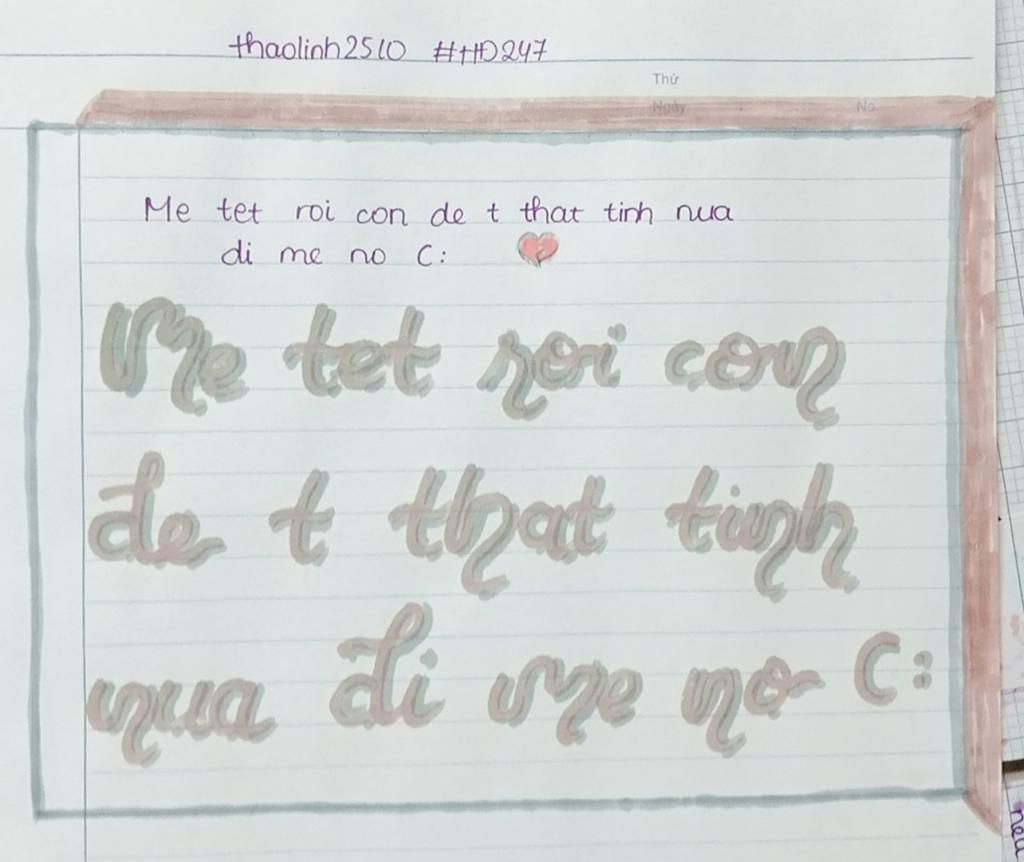 thaolinh2510 #HĐ247
Thứ
Ngày No.
Me tet roi con de t that tinh nua
di me no C:
Me tet roi con
de t that tinh
nua di me no C: